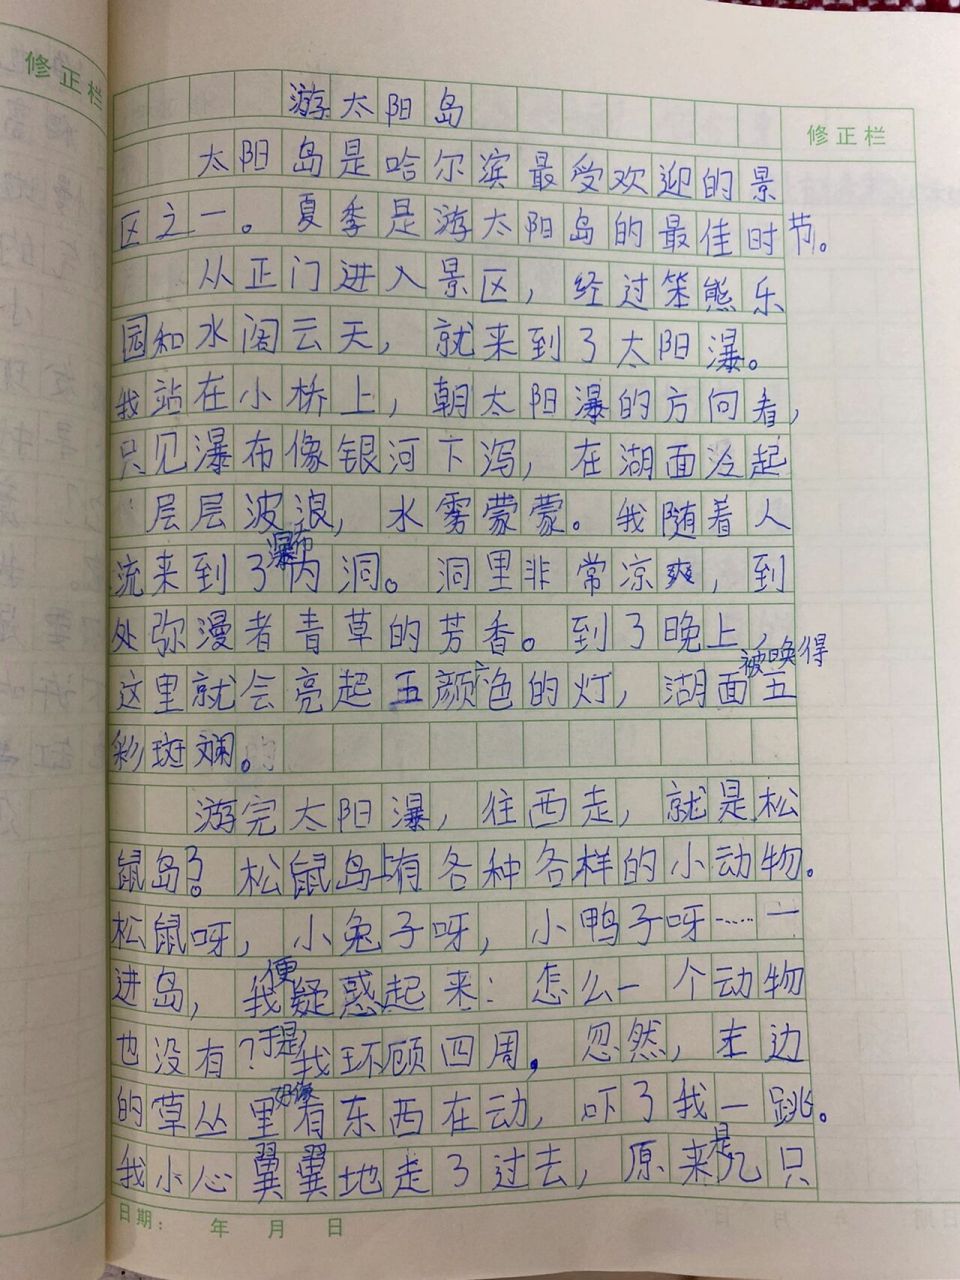 修正栏
游太阳岛
修正栏
太阳岛是哈尔滨最受欢迎的景
区之一。夏季是游太阳岛的最佳时节。
从正门进入景区，经过笨熊乐
园和水阁云天，就来到了太阳瀑。
我站在小桥上，朝太阳瀑的方向看，
只见瀑布像银河下泻，在湖面泛起
层层波浪，水雾蒙蒙。我随着人
流来到了瀑布内洞。洞里非常凉爽，到
处弥漫者青草的芳香。到了晚上，
这里就会亮起五颜六色的灯，湖面被映得五
彩斑斓。
游完太阳瀑，往西走，就是松
鼠岛了。松鼠岛上有各种各样的小动物。
松鼠呀，小兔子呀，小鸭子呀……一
进岛，我便疑惑起来：怎么一个动物
也没有？于是，我环顾四周。忽然，左边
的草丛里好像有东西在动，吓了我一跳。
我小心翼翼地走了过去，原来是几只
日期： 年 月 日